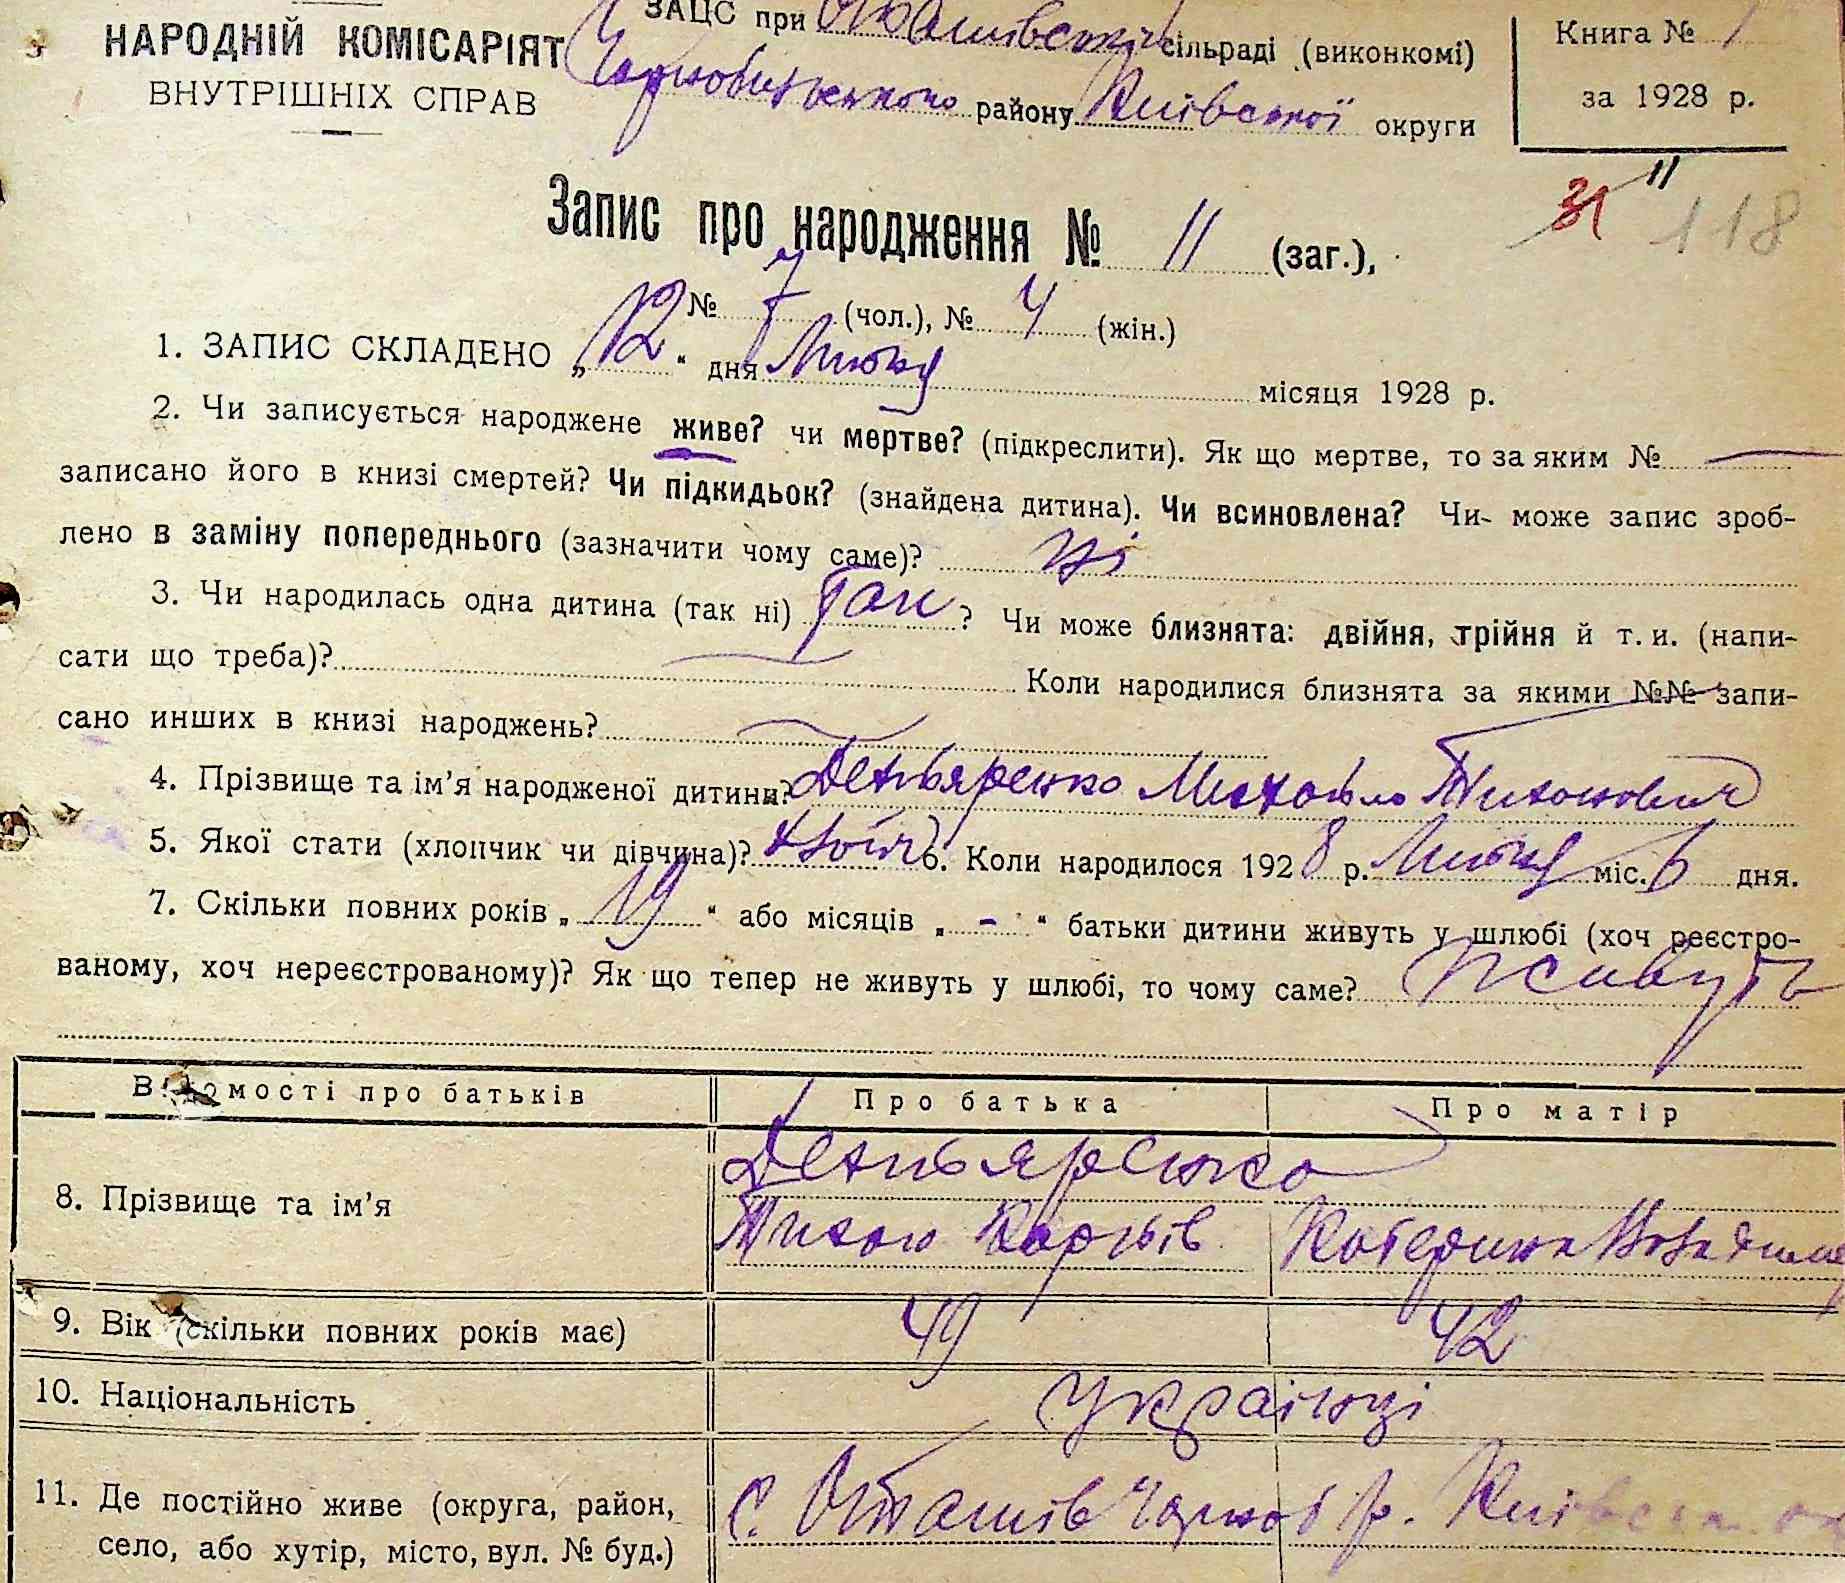 НАРОДНІЙ КОМІСАРІЯТ
ВНУТРІШНІХ СПРАВ
ЗАЦС при Оташівській сільраді (виконкомі)
Чорнобильського району Київської округи
Книга № 1
за 1928 р.
31 11 118
Запис про народження № 11 (заг.),
№ 7 (чол.), № 4 (жін.)
1. ЗАПИС СКЛАДЕНО „12“ дня Лютого місяця 1928 р.
2. Чи записується народжене живе? чи мертве? (підкреслити). Як що мертве, то за яким №
записано його в книзі смертей? Чи підкидьок? (знайдена дитина). Чи всиновлена? Чи може запис зроб-
лено в заміну попереднього (зазначити чому саме)? ні
3. Чи народилась одна дитина (так ні) так? Чи може близнята: двійня, трійня й т. и. (напи-
сати що треба)? Коли народилися близнята за якими №№ запи-
сано инших в книзі народжень?
4. Прізвище та ім’я народженої дитини? Михайло Тихонович
5. Якої стати (хлопчик чи дівчина)? 6. Коли народилося 1928 р. Лютого міс. 6 дня.
7. Скільки повних років „19“ або місяців „-“ батьки дитини живуть у шлюбі (хоч реєстро-
ваному, хоч нереєстрованому)? Як що тепер не живуть у шлюбі, то чому саме? Живуть
Відомості про батьків Про батька Про матір
8. Прізвище та ім’я
Тихон Карпів Катерина
9. Вік (скільки повних років має) 49 42
10. Національність Українці
11. Де постійно живе (округа, район,
село, або хутір, місто, вул. № буд.)
с. Оташів Чорноб р. Київськ.